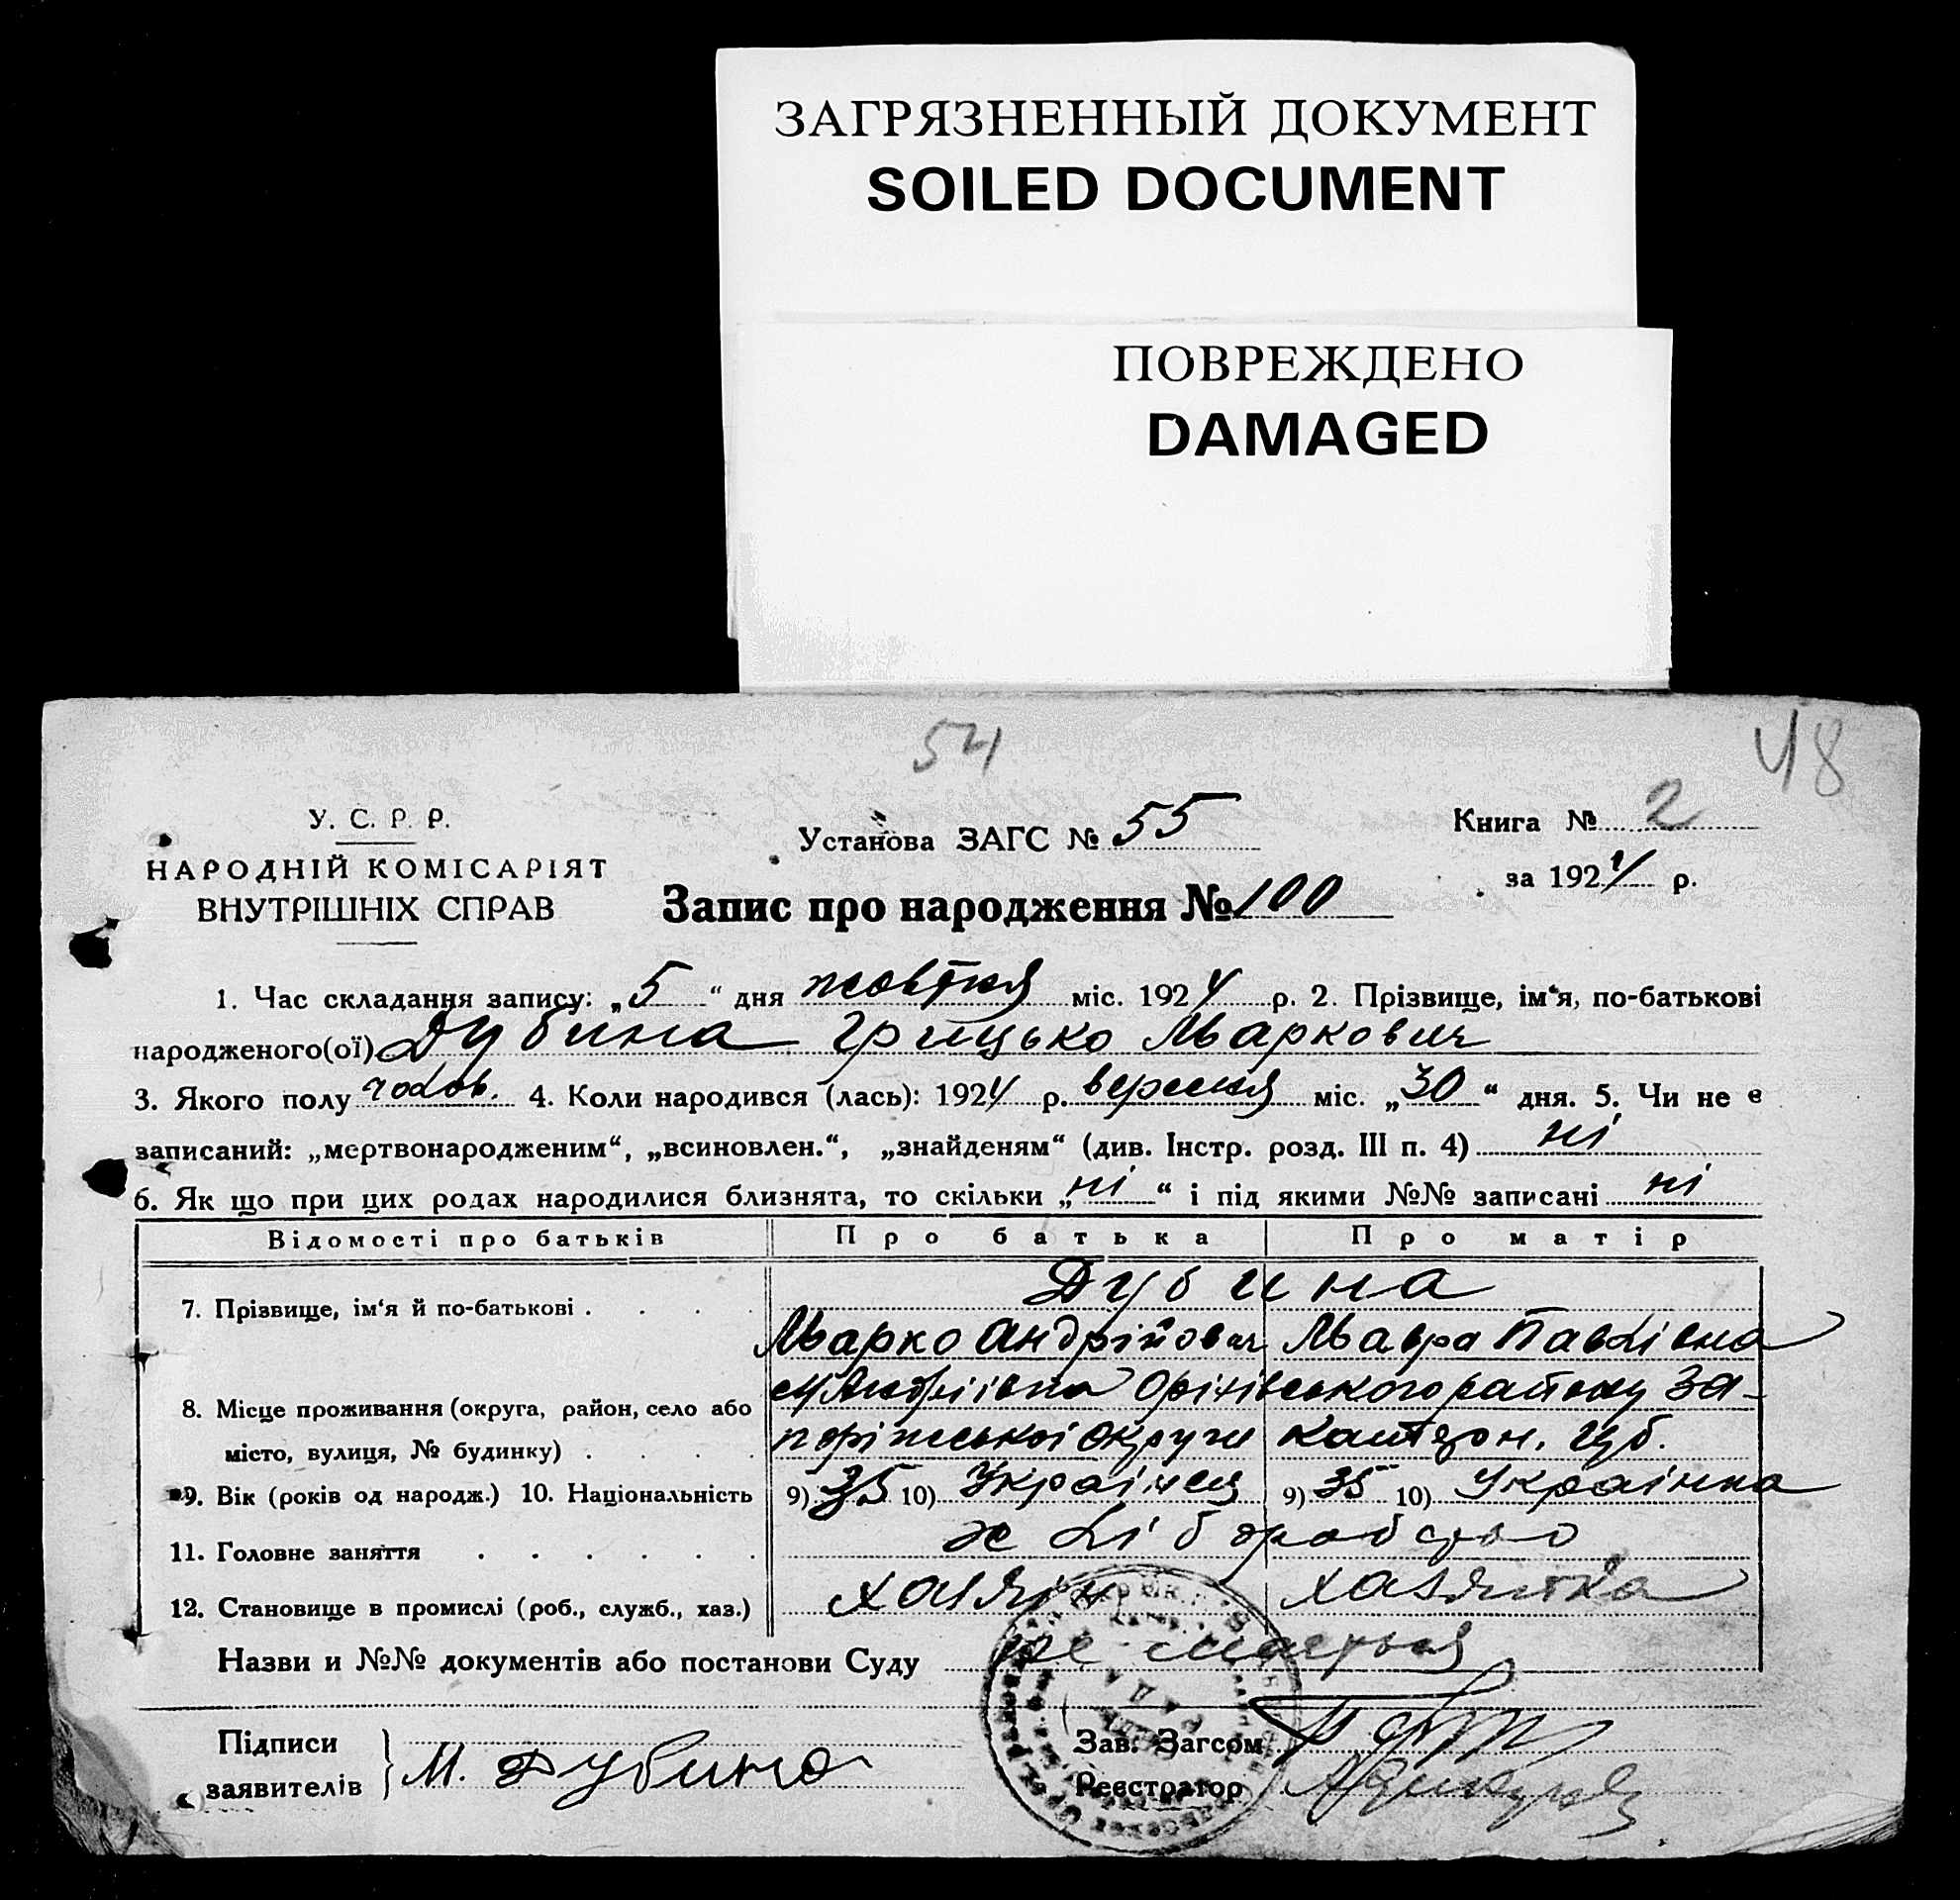 ЗАГРЯЗНЕННЫЙ ДОКУМЕНТ
SOILED DOCUMENT
ПОВРЕЖДЕНО
DAMAGED
54
48
У. С. Р. Р.
НАРОДНІЙ КОМІСАРІЯТ
ВНУТРІШНІХ СПРАВ
Установа ЗАГС № 55
Книга № 2
за 1924 р.
Запис про народження № 100
1. Час складання запису: „5“ дня жовтня міс. 1924 р. 2. Прізвище, ім‘я, по-батькові
народженого(ої) Дубина Грицько Маркович
3. Якого полу чолов. 4. Коли народився (лась): 1924 р. вересня міс. „30“ дня. 5. Чи не є
записаний: „мертвонародженим“, „всиновлен.“, „знайденям“ (див. Інстр. розд. III п. 4) ні
6. Як що при цих родах народилися близнята, то скільки „ні“ і під якими №№ записані ні
Відомості про батьків Про батька Про матір
7. Прізвище, ім‘я й по-батькові . . . . Дубина
Марко Андрійович Мавра Павлівна
8. Місце проживання (округа, район, село або Оріхівського району За-
місто, вулиця, № будинку) . . . . порізської Округи Катерон. губ.
9. Вік (років од народж.) 10. Національність 9) 35 10) Українец 9) 35 10) Українка
11. Головне заняття . . . . . . хліборобство
12. Становище в промислі (роб., служб., хаз.) хазяін хазяйка
Назви и №№ документів або постанови Суду
Підписи
заявителів } М. Дубина
Зав. Загсом
Реєстратор